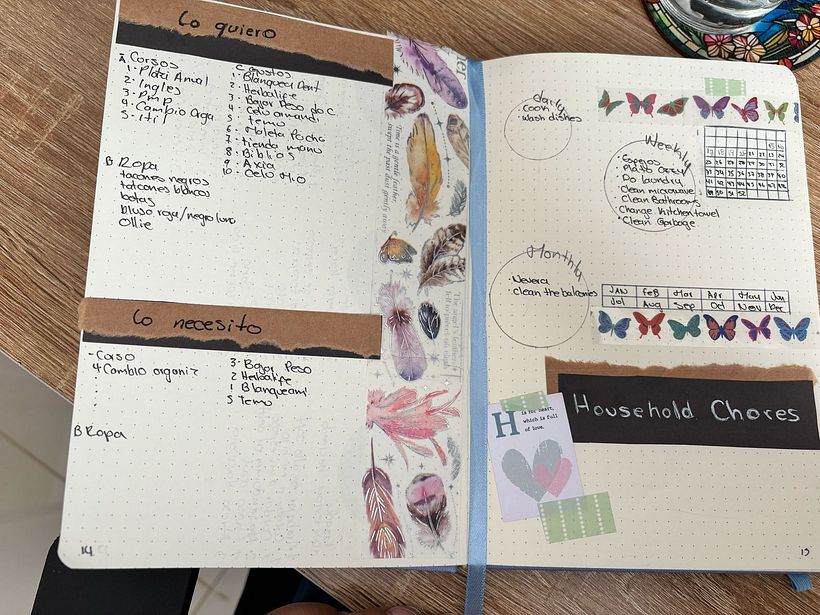 Lo quiero
A. Cursos
1. Platzi Anual
2. Ingles
3. Pmp
4. Cambio Orga
5. itil
B Ropa
tacones negros
tacones blancos
botas
blusa roja/negro/uno
Ollie
C Gustos
1. Blanquea Dent
2. Herbalife
3. Bajar Peso
4. Celu amandi
5. Temu
6. Maleta Pocha
7. tienda manu
8. Biblios
9. Axia
10. Celu Mio
Lo necesito
- Curso
4 Cambio organiz
B Ropa
3. Bajar Peso
2 Herbalife
1 Blanqueami
5 Temu
14
Time is a gentle feather,
The angel's feather
Daily
· Cook
· Wash dishes
Weekly
· Espejos
· Do laundry
· Clean microwave
· Clean Bathrooms
· Change Kitchen towel
· Clean Garbage
Monthly
· Nevera
· Clean the balconies
JAN Feb Mar Apr May Jun
Jul Aug Sep Oct Nov Dec
Household Chores
H is for heart,
which is full
of love.